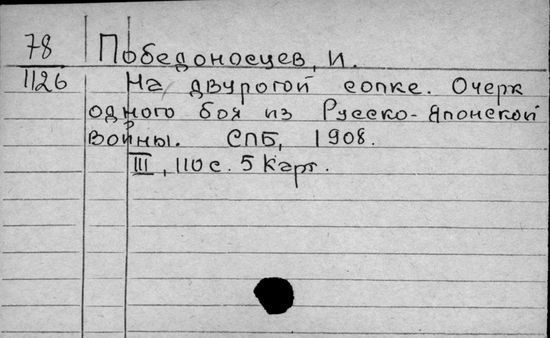 78 Победоносцев, И.
1126 На двурогой сопке. Очерк
одного боя из Русско-Японской
войны. СПБ, 1908.
III, 110 с. 5 карт.